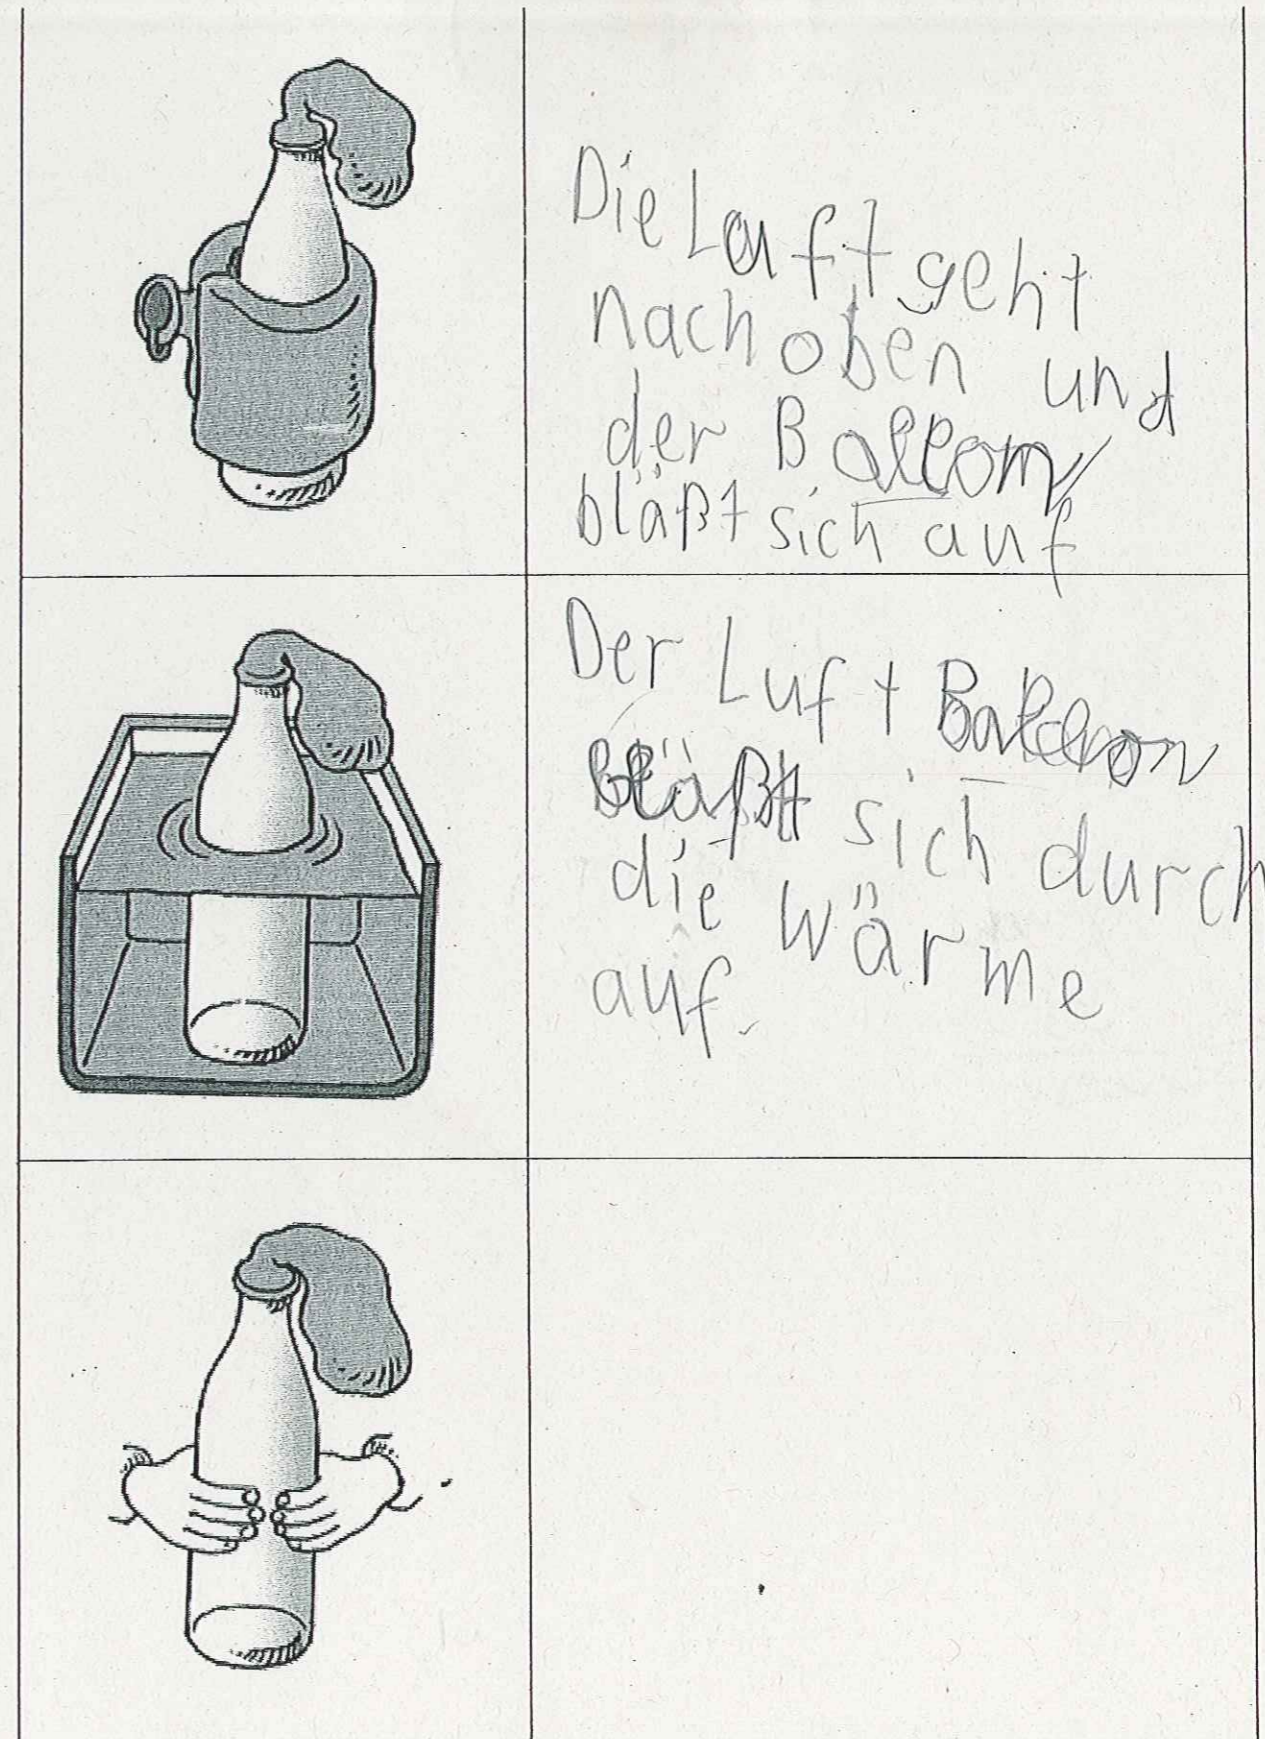 Die Lauft geht
nach oben und
der Ballon
bläßt sich auf
Der Luft Ballon
bläßt sich durch
die Wärme
auf.